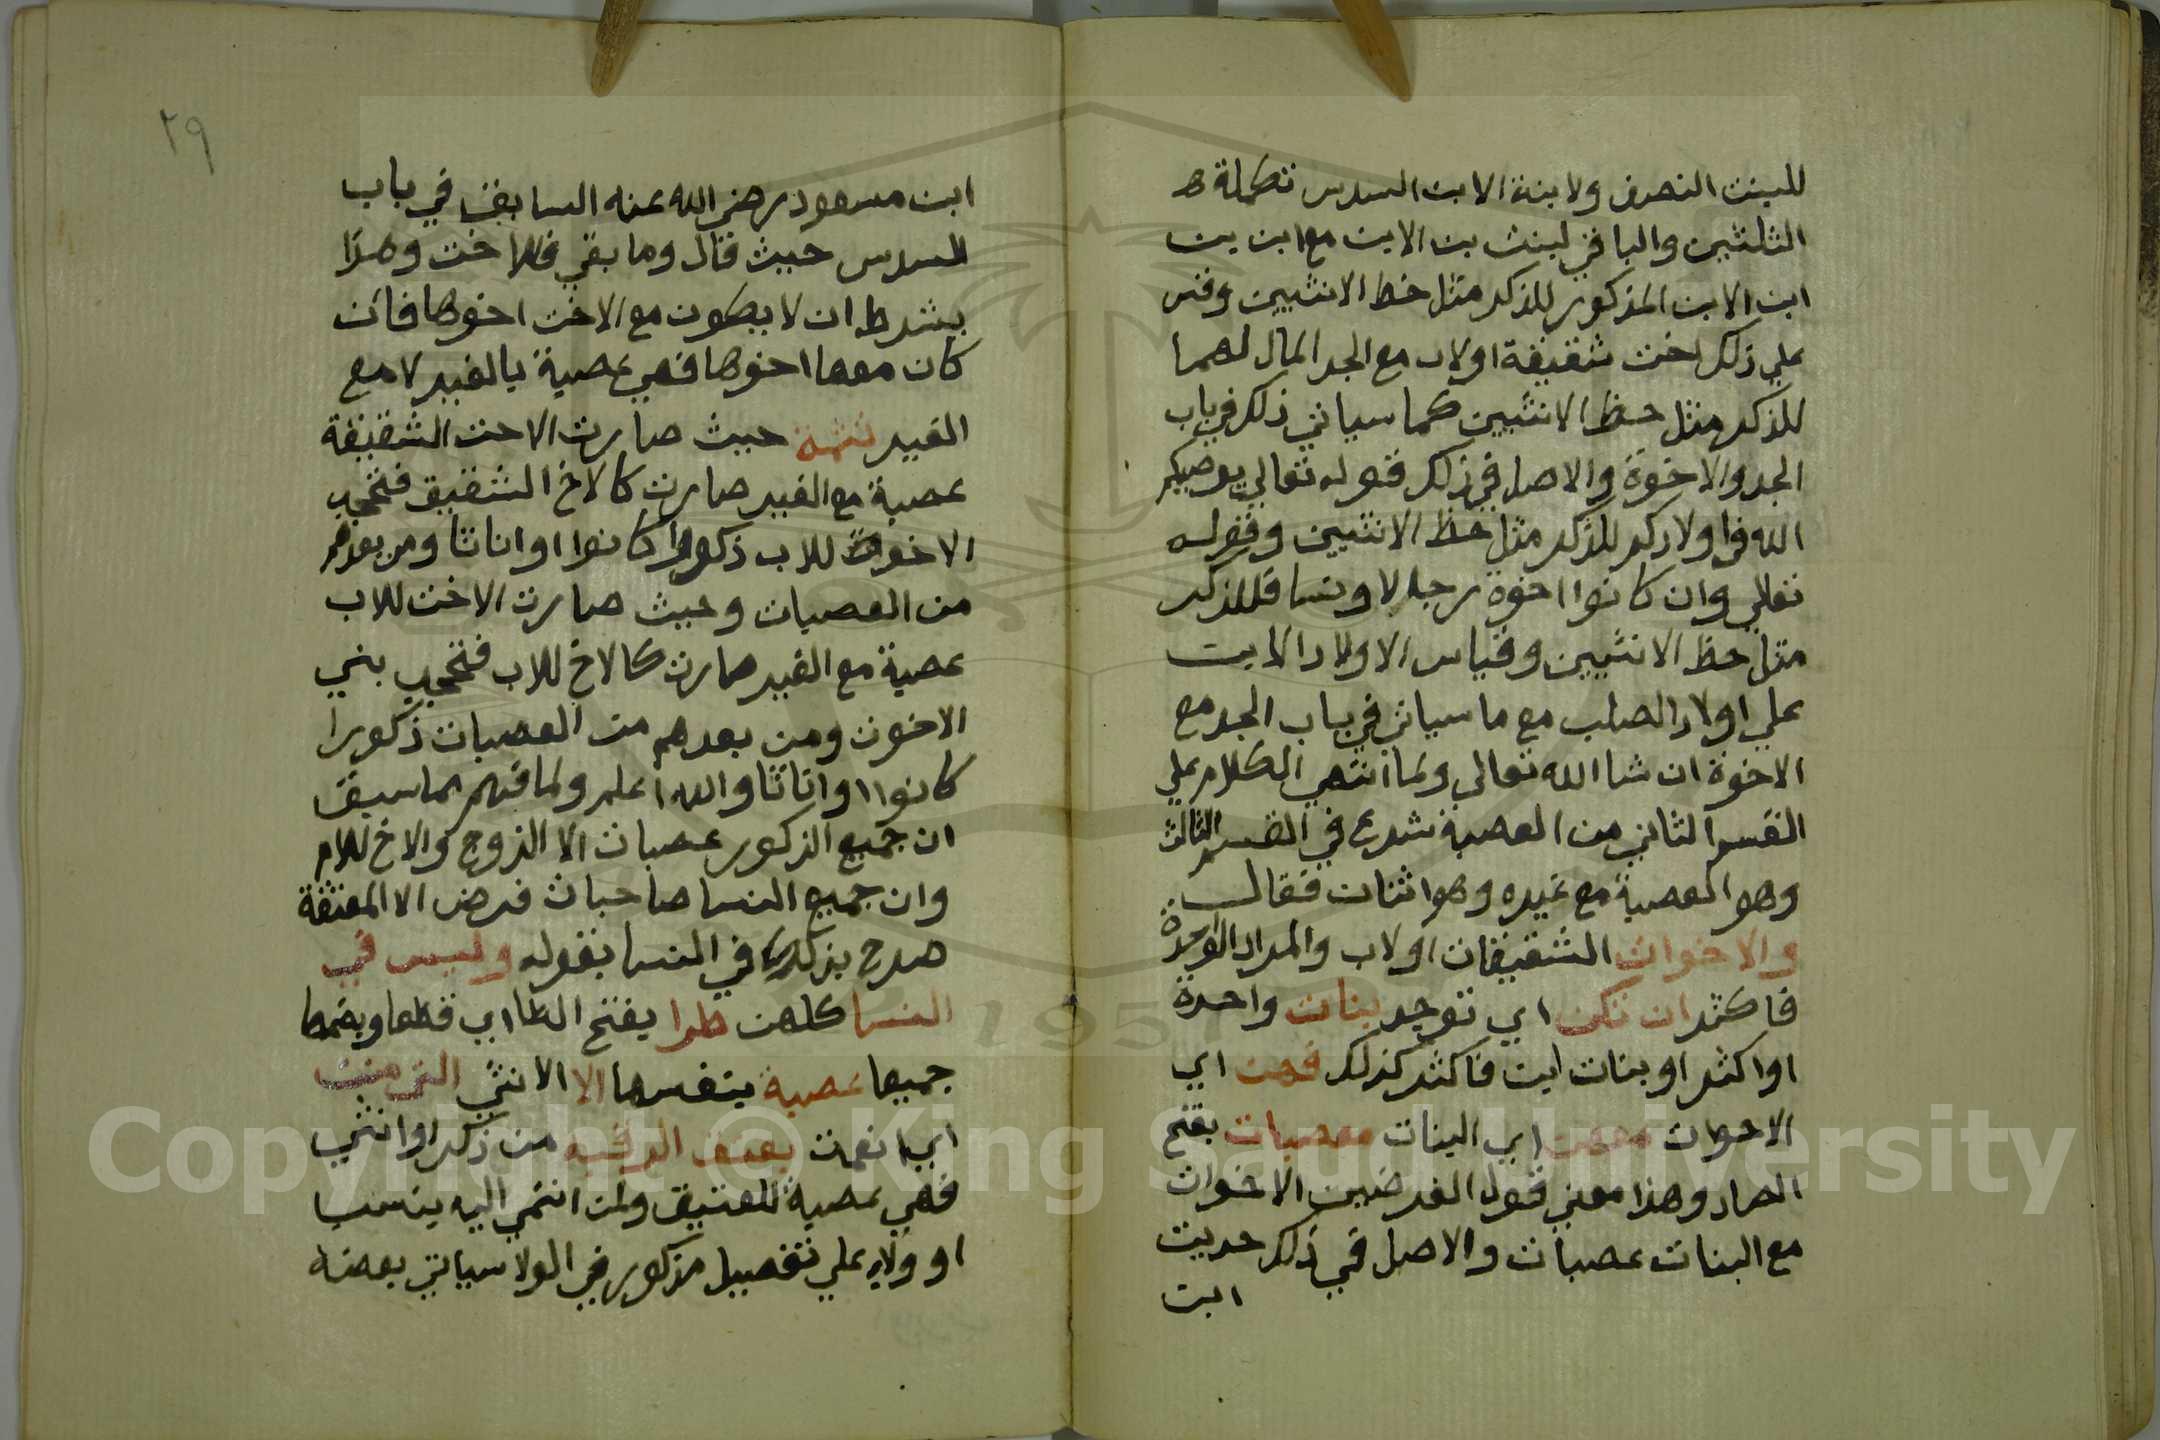 للبنت النصف ولابنة الابن السدس تكملة
الثلثين والباقي لبنت بن الابن مع ابن بن
ابن الابن المذكور للذكر مثل حظ الانثيين وقس
علي ذلك اخت شقيقة اولاب مع الجد المال لهما
للذكر مثل حظ الانثيين كما سياتي ذلك في باب
الجد والاخوة والاصل في ذلك قوله تعالي يوصيكم
الله في اولادكم للذكر مثل حظ الانثيين وقوله
تعالي وان كانوا اخوة رجالا ونسا فللذكر
مثل حظ الانثيين وقياس الاولاد الابن
علي اولاد الصلب مع ما سياتي في باب الجد مع
الاخوة ان شا الله تعالي ولما انتهي الكلام علي
القسم الثاني من العصبة شرع في القسم الثالث
وهو العصبة مع غيره وهو اثنان فقال
والاخوات الشقيقات اولاب والمراد الواحدة
فاكثر ان تكن اي توجد بنات واحدة
او اكثر او بنات ابن فاكثر كذلك فهن اي
الاخوات معهن اي البنات معصبات بفتح
الصاد وهذا معني قول الفرضيين الاخوات
مع البنات عصبات والاصل في ذلك حديث
ابن
٢٩
ابن مسعود رضي الله عنه السابق في باب
السدس حيث قال وما بقي فللاخت وهذا
بشرط ان لا يكون مع الاخت اخوها فان
كان معها اخوها فهي عصبة بالغير لا مع
الغير تتمة حيث صارت الاخت الشقيقة
عصبة مع الغير صارت كالاخ الشقيق فتحجب
الاخوة للاب ذكورا كانوا او اناثا ومن بعدهم
من العصبات وحيث صارت الاخت للاب
عصبة مع الغير صارت كالاخ للاب فتحجب بني
الاخوة ومن بعدهم من العصبات ذكورا
كانوا او اناثا والله اعلم ولما فهم مما سبق
ان جميع الذكور عصبات الا الزوج والاخ للام
وان جميع النسا صاحبات فرض الا المعتقة
صرح بذلك في النسا بقوله وليس في
النسا كلهن طرا بفتح الطا اي قطعا وبضمها
جميعا عصبة بنفسها الا الانثي التي منت
اي انعمت بعتق الرقبه من ذكر او انثي
فهي عصبة للعتيق ولمن انتمي اليه بنسب
او ولاء علي تفصيل مذكور في الولا سياتي بعضه
Copyright © King Saud University
1957